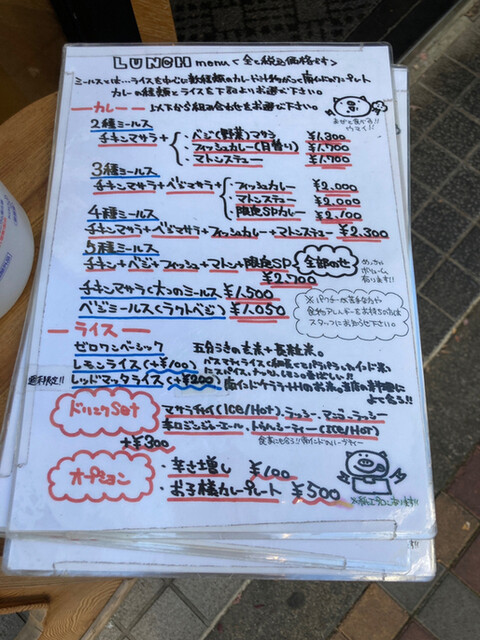 LUNCH menu <全て税込価格です>
ミールスとは…ライスを中心に数種類のカレーや汁物がついた南インドのワンプレート
カレーの種類とライスを下記よりお選び下さい。
ーカレー ー 以下から組み合わせをお選び下さい。
2種ミールス
チキンマサラ +
・ベジ(野菜)マサラ ¥1,300
・フィッシュカレー(日替り) ¥1,700
・マトンステュー ¥1,700
3種ミールス
チキンマサラ+ベジマサラ+
・フィッシュカレー ¥2,000
・マトンステュー ¥2,000
・限定SPカレー ¥2,100
4種ミールス
チキンマサラ+ベジマサラ+フィッシュカレー+マトンステュー ¥2,300
5種ミールス
チキン+ベジ+フィッシュ+マトン+限定SP
全部のせ
めっちゃボリューム有ります!!
¥2,700
チキンマサラ1つのミールス ¥1,500
ベジミールス(ラクトベジ) ¥1,050
※パクチーが苦手な方や
食物アレルギーをお持ちの方は
スタッフにお知らせ下さい。
ーライスー
ゼロワンベーシック 五分づきの玄米+長粒米。
レモンライス(+¥100)
週末限定!! レッドマッタライス(+¥200) 南インドケララ州のお米。当店の料理に
よく合う!!
ドリンクSet
+¥300
マサラチャイ(ICE/HOT)・ラッシー・マンゴーラッシー
辛口ジンジャーエール・トゥルシーティー(ICE/HOT)
オプション
・辛さ増し ¥100
・お子様カレープレート ¥500